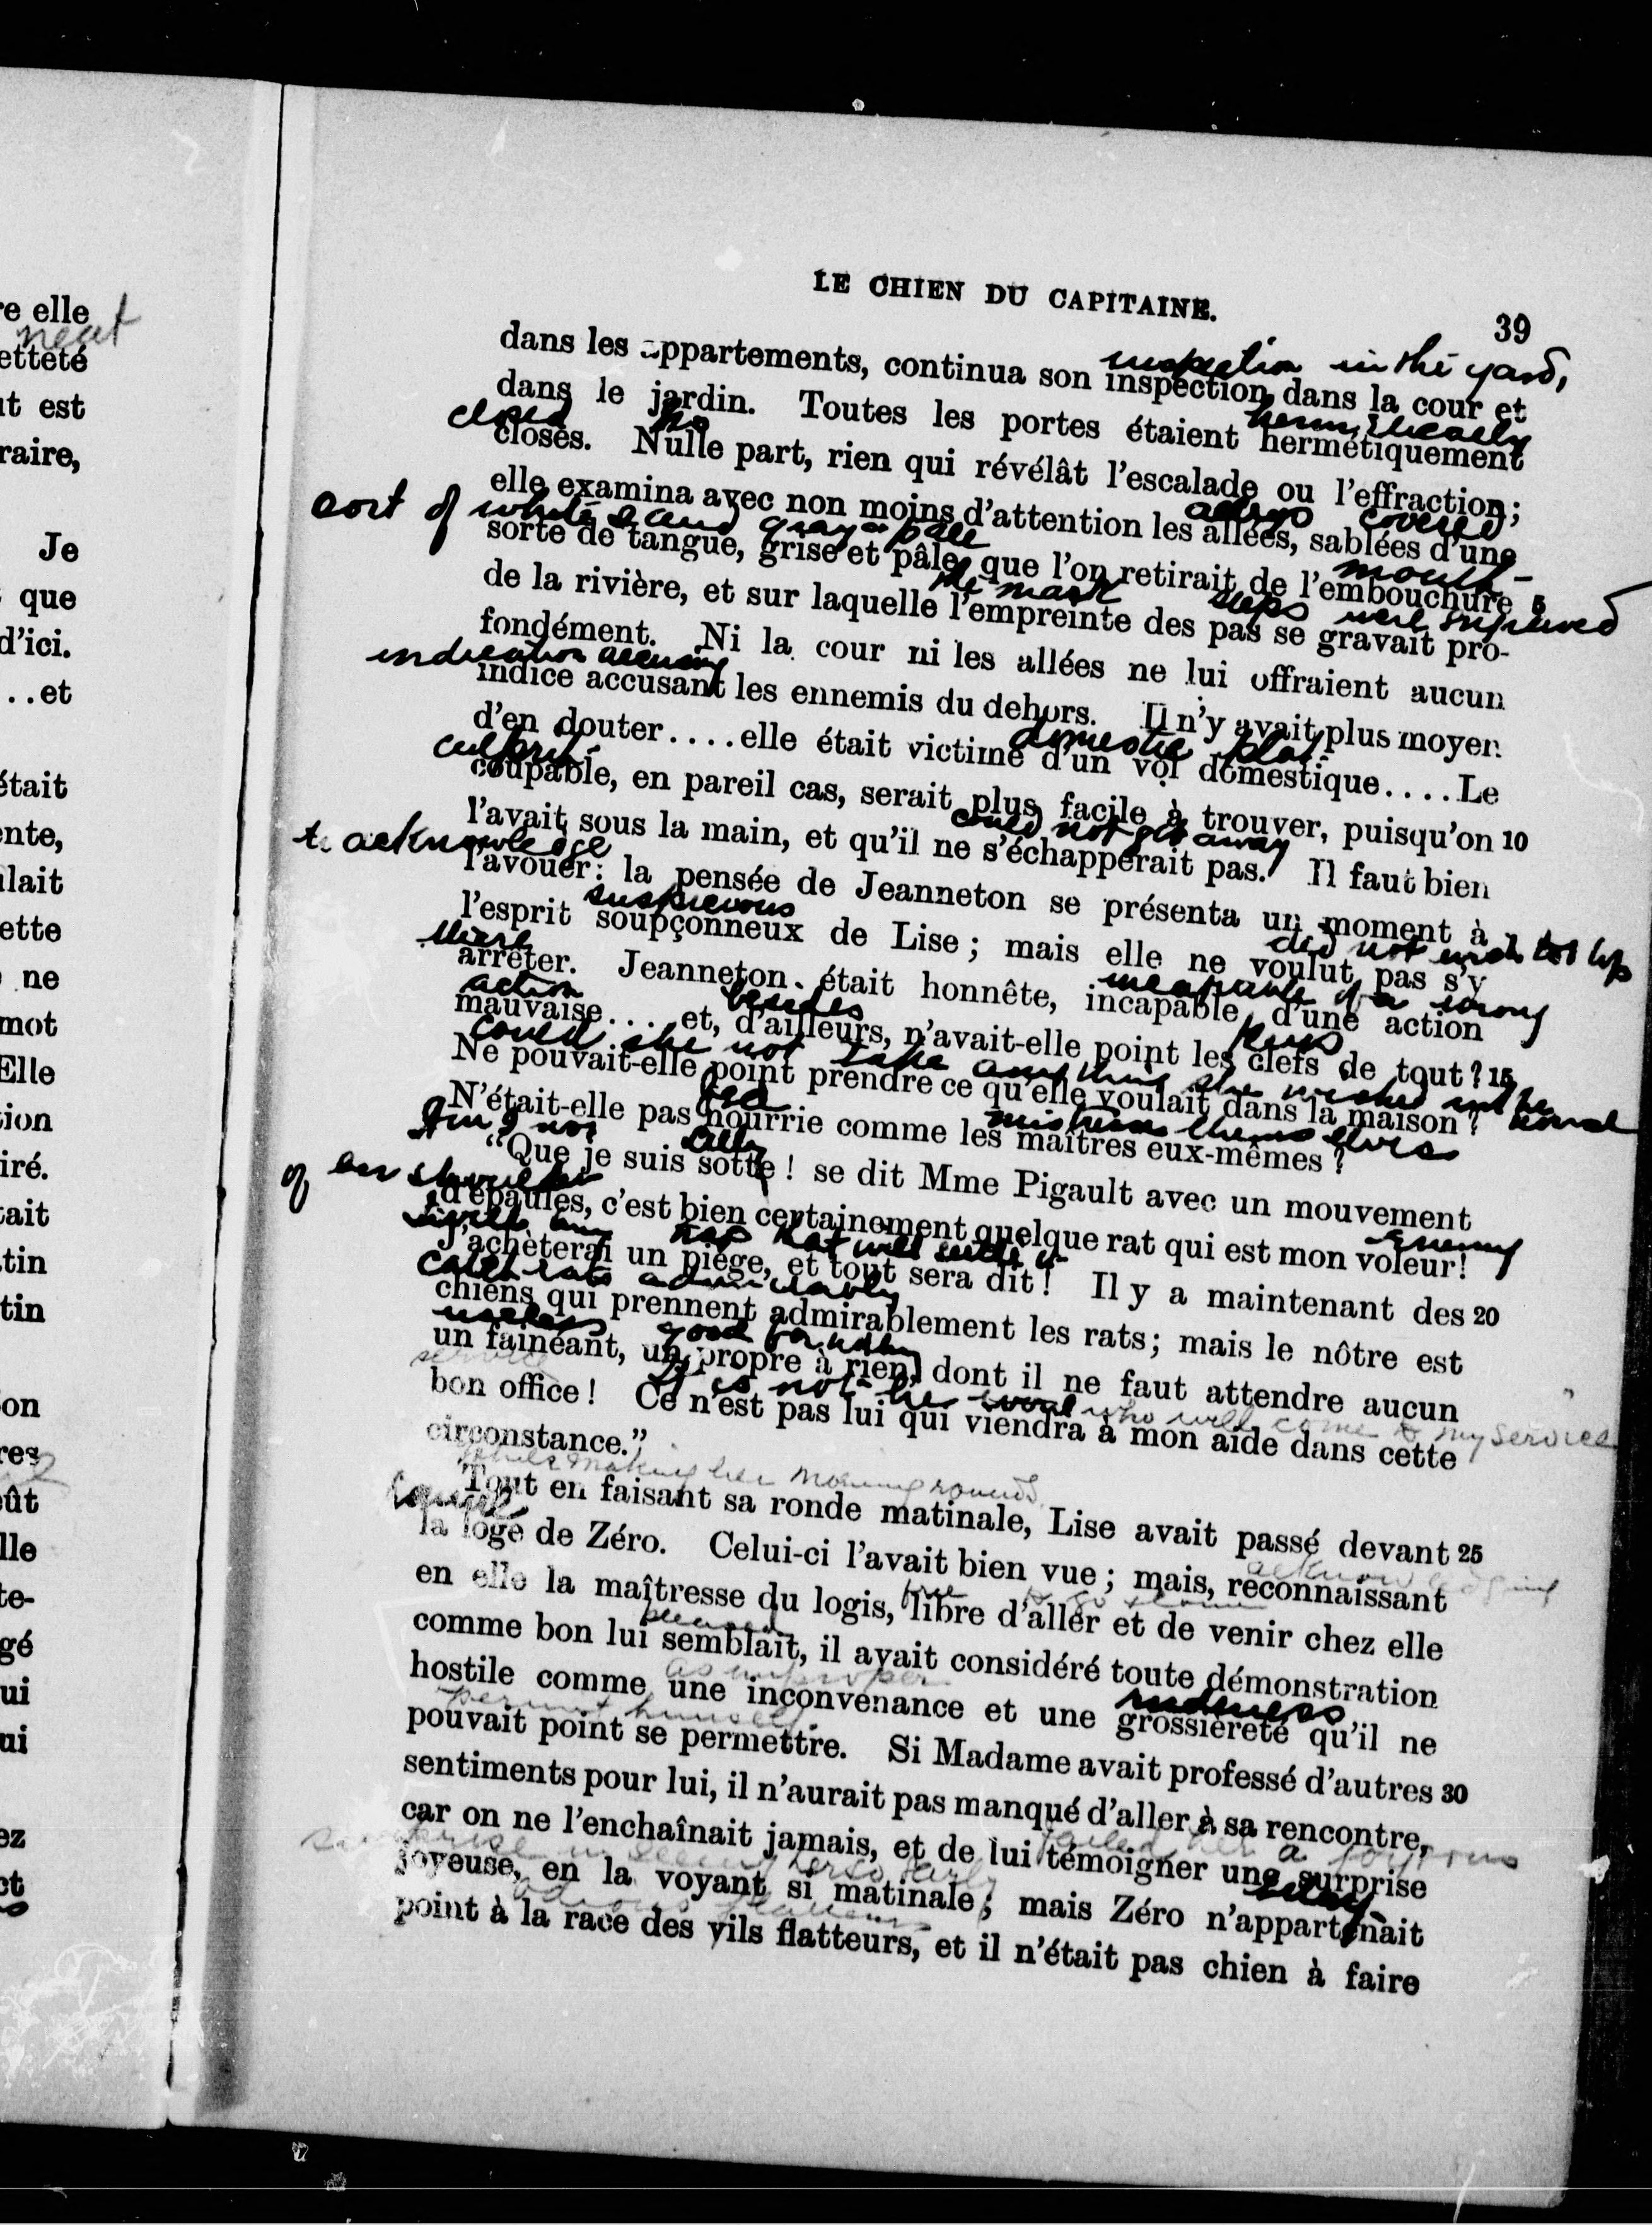 LE CHIEN DU CAPITAINE.
39
inspection in the yard,
dans les appartements, continua son inspection dans la cour et
closed no hermetically
dans le jardin. Toutes les portes étaient hermétiquement
closes. Nulle part, rien qui révélât l'escalade ou l'effraction;
alleys covered
elle examina avec non moins d'attention les allées, sablées d'une
sort of white sand gray & pale
mouth
sorte de tangue, grise et pâle, que l'on retirait de l'embouchure 5
the mark steps were engraved
de la rivière, et sur laquelle l'empreinte des pas se gravait pro-
fondément. Ni la cour ni les allées ne lui offraient aucun
indication accusing
indice accusant les ennemis du dehors. Il n'y avait plus moyen
domestic
d'en douter....elle était victime d'un vol domestique....Le
culprit
coupable, en pareil cas, serait plus facile à trouver, puisqu'on 10
could not get away
l'avait sous la main, et qu'il ne s'échapperait pas. Il faut bien
to acknowledge
l'avouer: la pensée de Jeanneton se présenta un moment à
suspicious
l'esprit soupçonneux de Lise; mais elle ne voulut pas s'y
there did not wish to
arrêter. Jeanneton était honnête, incapable d'une action
action besides incapable of a wrong
mauvaise.... et, d'ailleurs, n'avait-elle point les clefs de tout? 15
could she not take any thing she wished in the house
keys
Ne pouvait-elle point prendre ce qu'elle voulait dans la maison?
fed
N'était-elle pas nourrie comme les maîtres eux-mêmes?
themselves
silly
“Que je suis sotte! se dit Mme Pigault avec un mouvement
of her shoulder
d'épaules, c'est bien certainement quelque rat qui est mon voleur!
trap that will
J'achèterai un piège, et tout sera dit! Il y a maintenant des 20
catch rats admirably
chiens qui prennent admirablement les rats; mais le nôtre est
useless good for nothing
un fainéant, un propre à rien, dont il ne faut attendre aucun
service
It is not he
bon office! Ce n'est pas lui qui viendra à mon aide dans cette
who will come to my service
circonstance.”
while making her morning rounds
Tout en faisant sa ronde matinale, Lise avait passé devant 25
la loge de Zéro. Celui-ci l'avait bien vue; mais, reconnaissant
acknowledging
en elle la maîtresse du logis, libre d'aller et de venir chez elle
free
comme bon lui semblait, il avait considéré toute démonstration
pleased
hostile comme une inconvenance et une grossièreté qu'il ne
as improper rudeness
permit himself
pouvait point se permettre. Si Madame avait professé d'autres 30
sentiments pour lui, il n'aurait pas manqué d'aller à sa rencontre,
car on ne l'enchaînait jamais, et de lui témoigner une surprise
joyeuse, en la voyant si matinale; mais Zéro n'appartenait
point à la race des vils flatteurs, et il n'était pas chien à faire
re elle
neat
etteté
ut est
raire,
Je
que
d'ici.
..et
était
ente,
ulait
ette
ne
mot
Elle
tion
iré.
tait
tin
tin
on
res
oût
lle
te-
gé
ui
ui
ez
ct